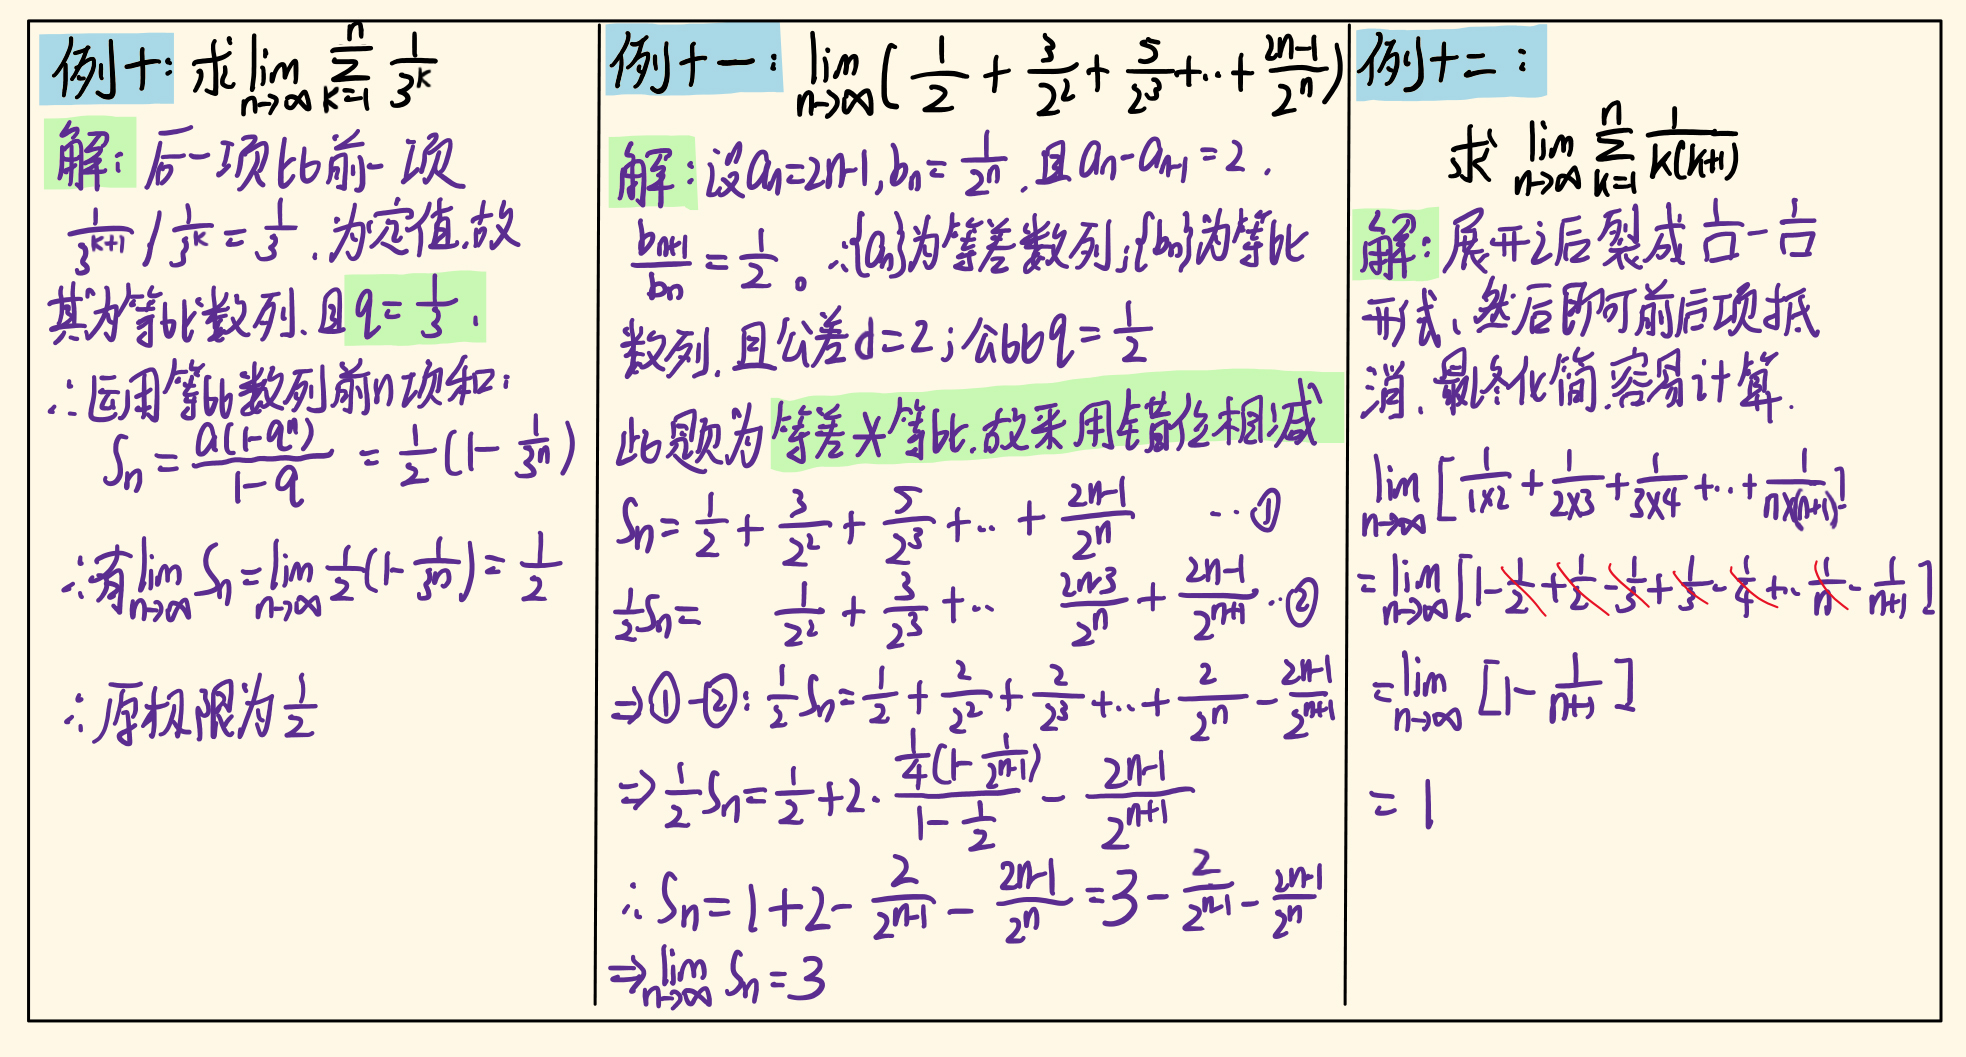 例十: 求 lim_{n→∞} Σ_{k=1}^{n} 1/3^k
解: 后一项比前一项
1/3^{k+1} / 1/3^k = 1/3 . 为定值.故
其为等比数列.且 q = 1/3 .
∴运用等比数列前n项和:
S_n = a(1-q^n)/(1-q) = 1/2 (1 - 1/3^n)
∴有 lim_{n→∞} S_n = lim_{n→∞} 1/2 (1 - 1/3^n) = 1/2
∴原极限为 1/2
例十一: lim_{n→∞} ( 1/2 + 3/2^2 + 5/2^3 +..+ (2n-1)/2^n )
解: 设 a_n = 2n-1, b_n = 1/2^n . 且 a_n - a_{n-1} = 2 .
b_{n+1}/b_n = 1/2 。∴{a_n}为等差数列;{b_n}为等比
数列.且公差 d = 2 ;公比 q = 1/2
此题为等差×等比.故采用错位相减
S_n = 1/2 + 3/2^2 + 5/2^3 +..+ (2n-1)/2^n ··①
1/2 S_n = 1/2^2 + 3/2^3 +.. (2n-3)/2^n + (2n-1)/2^{n+1} ··②
⇒①-②: 1/2 S_n = 1/2 + 2/2^2 + 2/2^3 +..+ 2/2^n - (2n-1)/2^{n+1}
⇒ 1/2 S_n = 1/2 + 2· 1/4 (1 - 1/2^{n-1}) / (1 - 1/2) - (2n-1)/2^{n+1}
∴ S_n = 1+2 - 2/2^{n-1} - (2n-1)/2^n = 3 - 2/2^{n-1} - (2n-1)/2^n
⇒ lim_{n→∞} S_n = 3
例十二:
求 lim_{n→∞} Σ_{k=1}^{n} 1/(k(k+1))
解: 展开之后裂成 1/□ - 1/□
形式、然后即可前后项抵
消、最终化简.容易计算.
lim_{n→∞} [ 1/(1×2) + 1/(2×3) + 1/(3×4) +..+ 1/(n×(n+1)) ]
= lim_{n→∞} [ 1 - 1/2 + 1/2 - 1/3 + 1/3 - 1/4 +.. 1/n - 1/(n+1) ]
= lim_{n→∞} [ 1 - 1/(n+1) ]
= 1